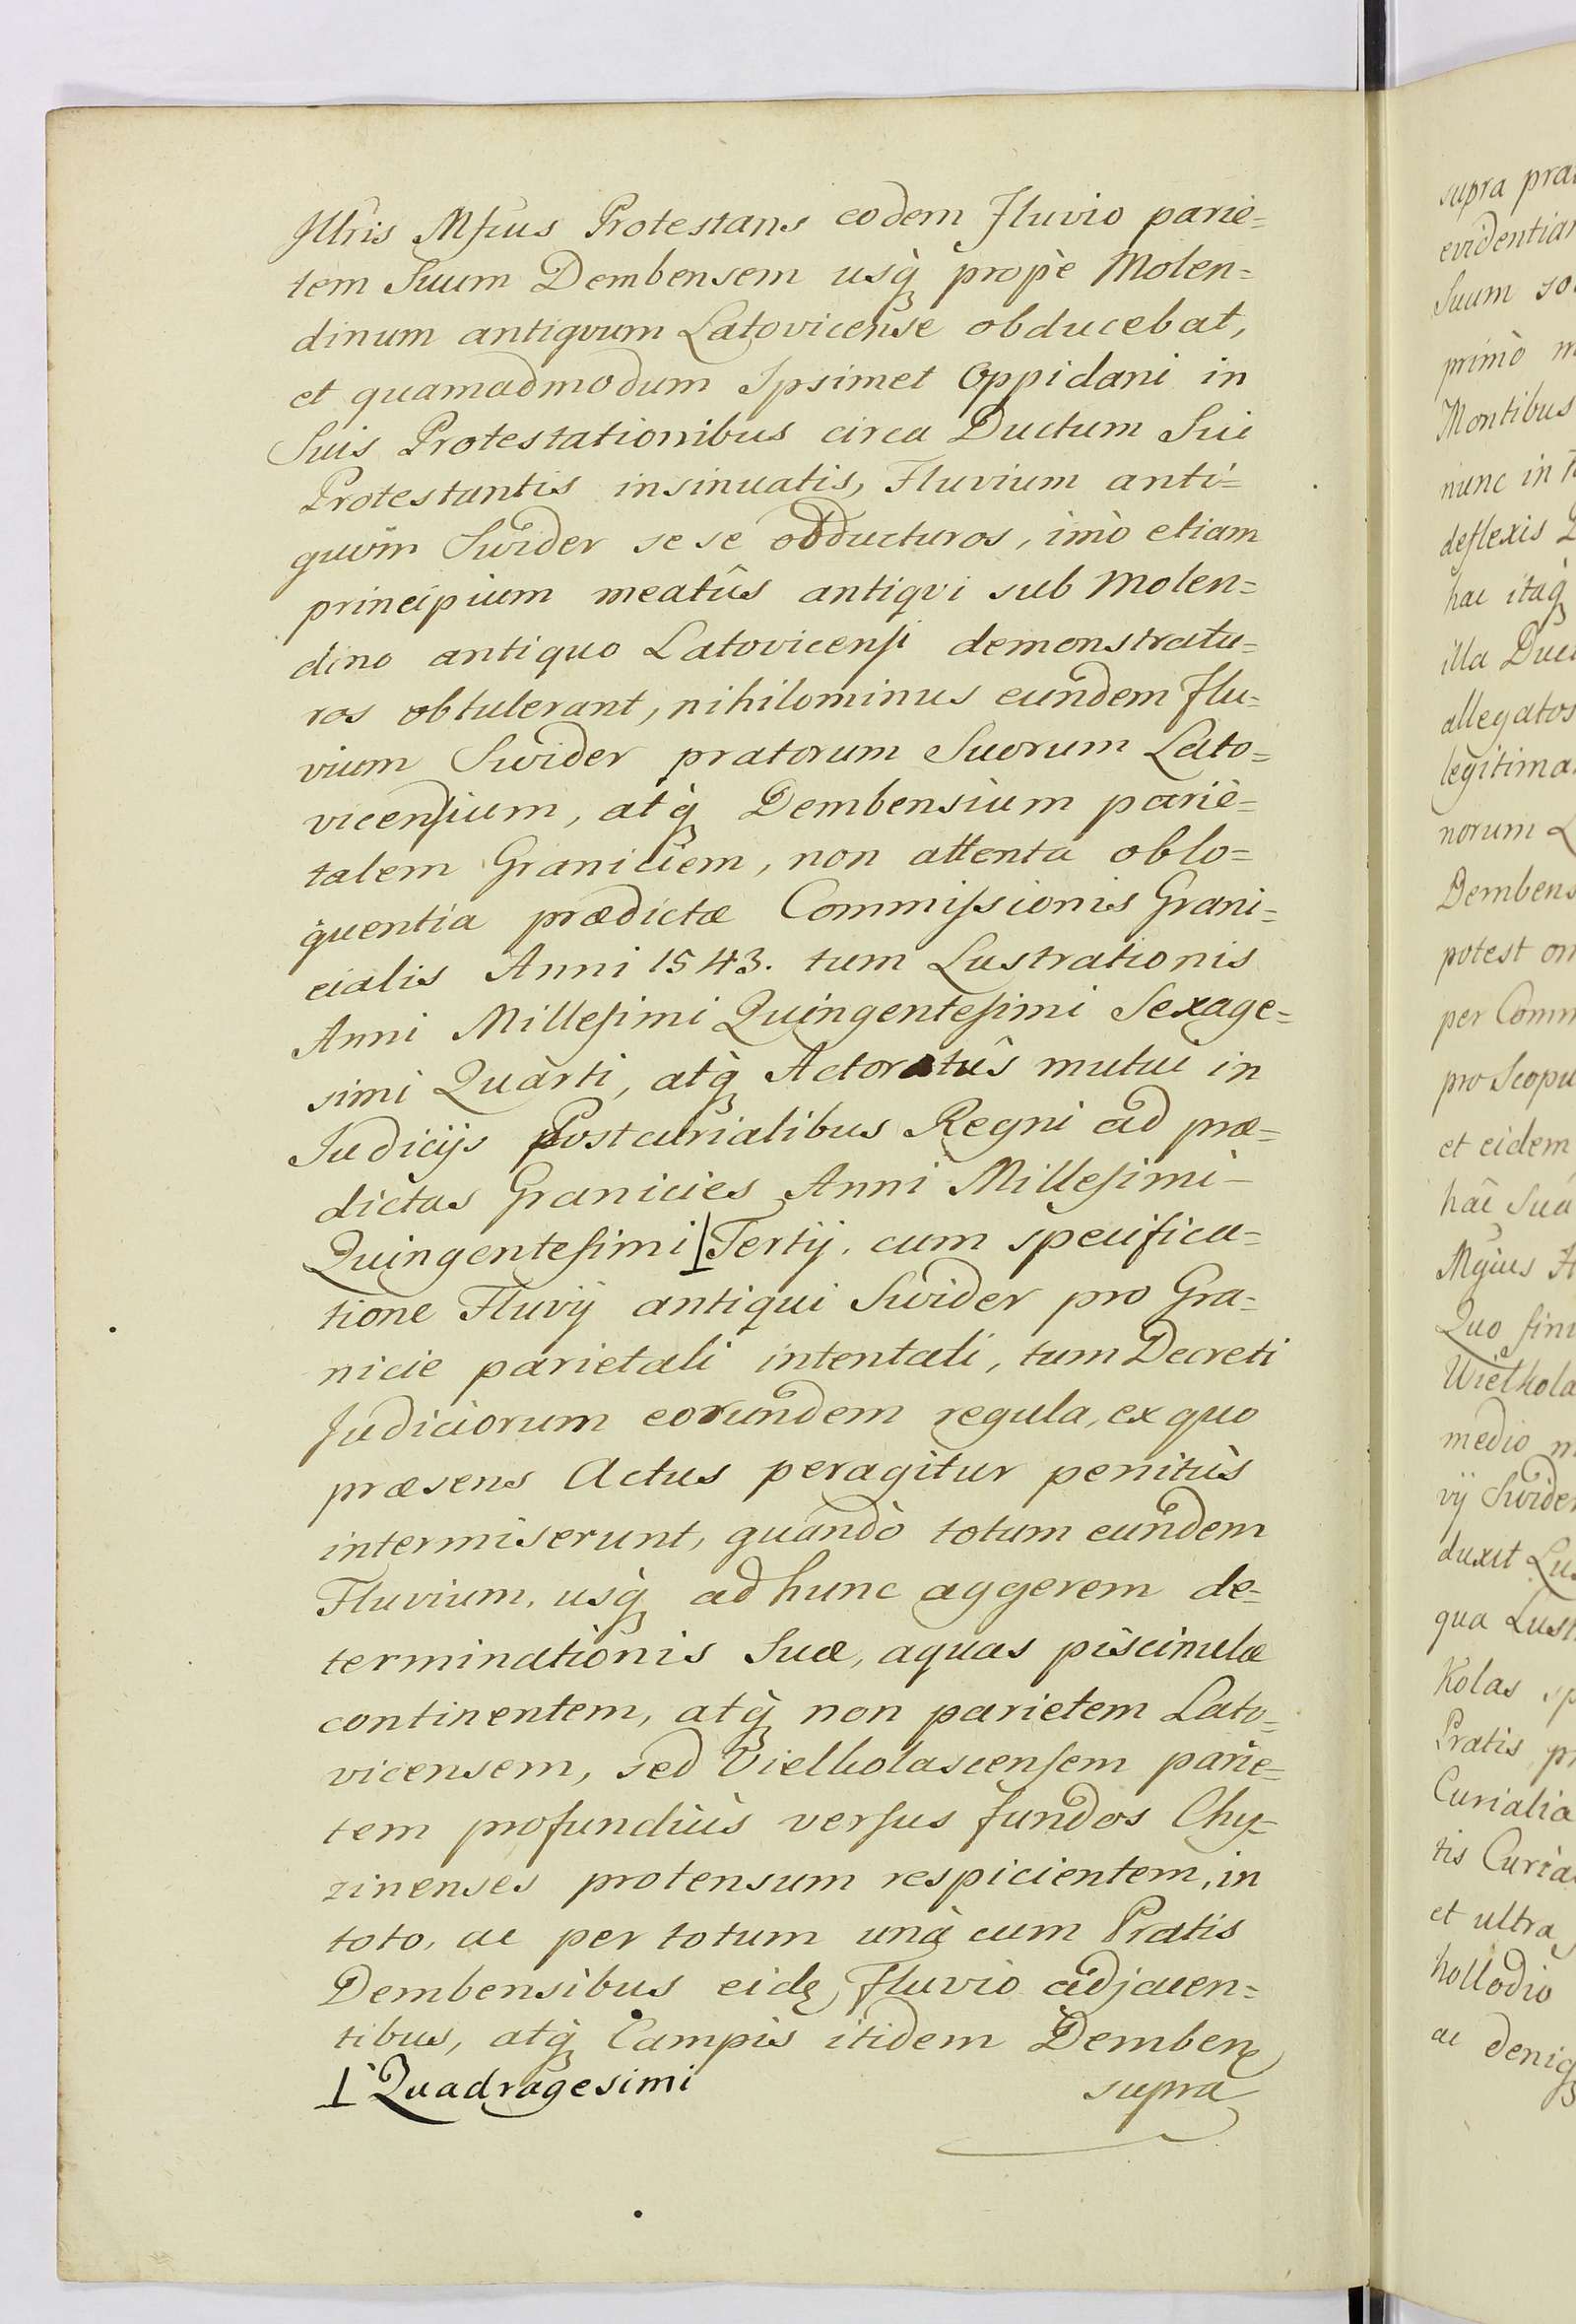 Jllris Mfcus Protestans eodem Fluvio parie=
tem Suum Dembensem usq̀ propè Molen=
dinum antiqvum Latovicense obducebat,
et quamadmodum Ipsimet Oppidani in
Suis Protestationibus circa Ductum Sui
Protestantis insinuatis, Fluvium anti=
quum Swider se se obducturos, imò etiam
principium meatûs antiqvi sub Molen=
dino antiquo Latovicensi demonstratu=
ros obtulerant, nihilominus eundem Flu=
vium Swider pratorum Suorum Lato=
vicensium, atq̀ Dembensium pariè=
talem Graniciem, non attenta oblo=
quentia prædictæ Commissionis Grani=
cialis Anni 1543. tum Lustrationis
Anni Millesimi Quingentesimi Sexage=
simi Quarti, atq̀ Actoratûs mutui in
Judicijs Postcurialibus Regni ad præ=
dictas Granicies Anni Millesimi-
Quingentesimi ⊥ Tertij. cum specifica=
tione Fluvij antiqui Swider pro Gra=
nicie parietali intentali, tum Decreti
Judiciorum eorundem regula, ex quo
præsens Actus peragitur penitùs
intermiserunt, quandò totum eundem
Fluvium, usq̀ ad hunc aggerem de=
terminationis Suæ, aquas piscinulæ
continentem, atq̀ non parietem Lato=
vicensem, sed Vielkolascensem parie=
tem profundiùs versus fundos Chy=
zinenses protensum respicientem, in
toto, ac per totum unà cum Pratis
Dembensibus eidę Fluvio adjacen=
tibus, atq̀ Campis itidem Dembenę
⊥ Quadragesimi supra
supra
evidentiam
Suum
primò
Montibus
nunc in
deflexis
hac itaq̀
illa
allegatos
norum
potest
per
pro
et eidem
haĉ Suâ
Quo
medio
vij Swider
duxit
qua
Kolas
Pratis
Curialia
tis
et ultra
ac deniq̀